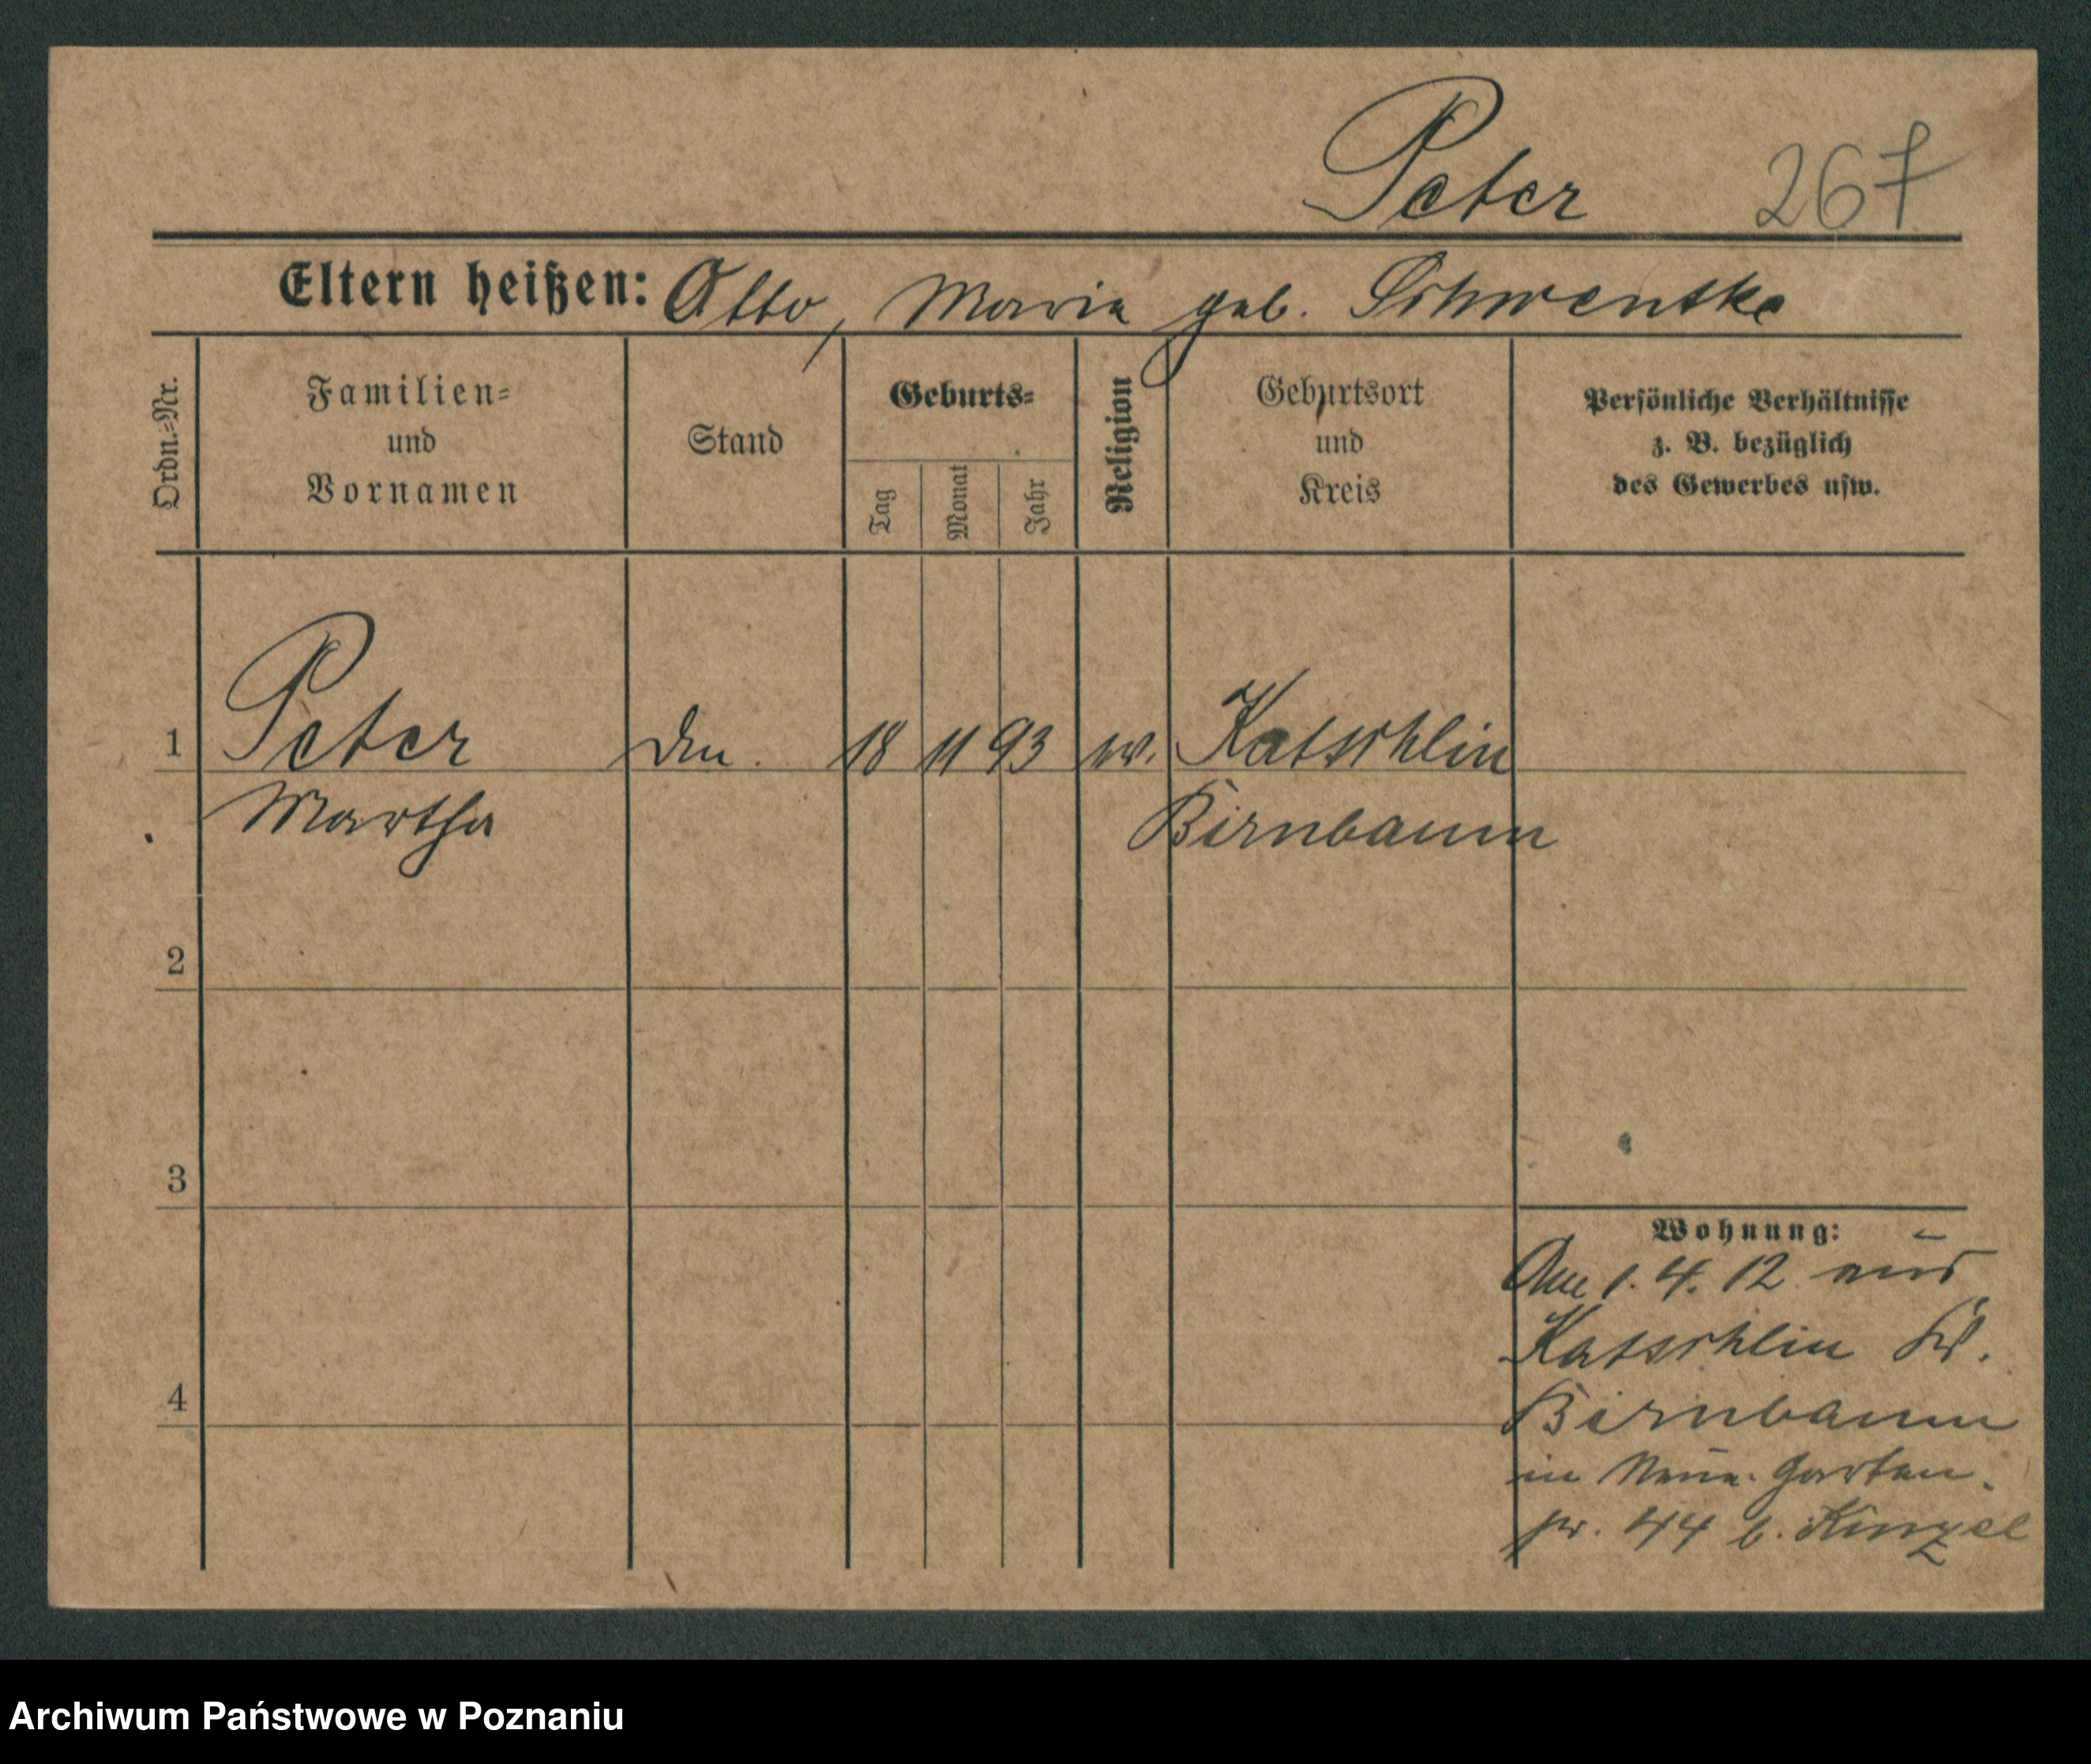 Peter 267
Eltern heißen: Otto, Maria geb. Schwentke
Ordn.-Nr.
Familien-
und
Vornamen
Stand
Geburts-
Tag
Monat
Jahr
Religion
Geburtsort
und
Kreis
Persönliche Verhältnisse
z. B. bezüglich
des Gewerbes usw.
1 Peter 18 11 93 ev. Katschlin
Martha Birnbaum
2
3
4
Wohnung:
Am 1. 4. 12 aus
Katschlin Kr.
Birnbaum
in Neue Garten-
str. 44 b. Kinzel
Archiwum Państwowe w Poznaniu